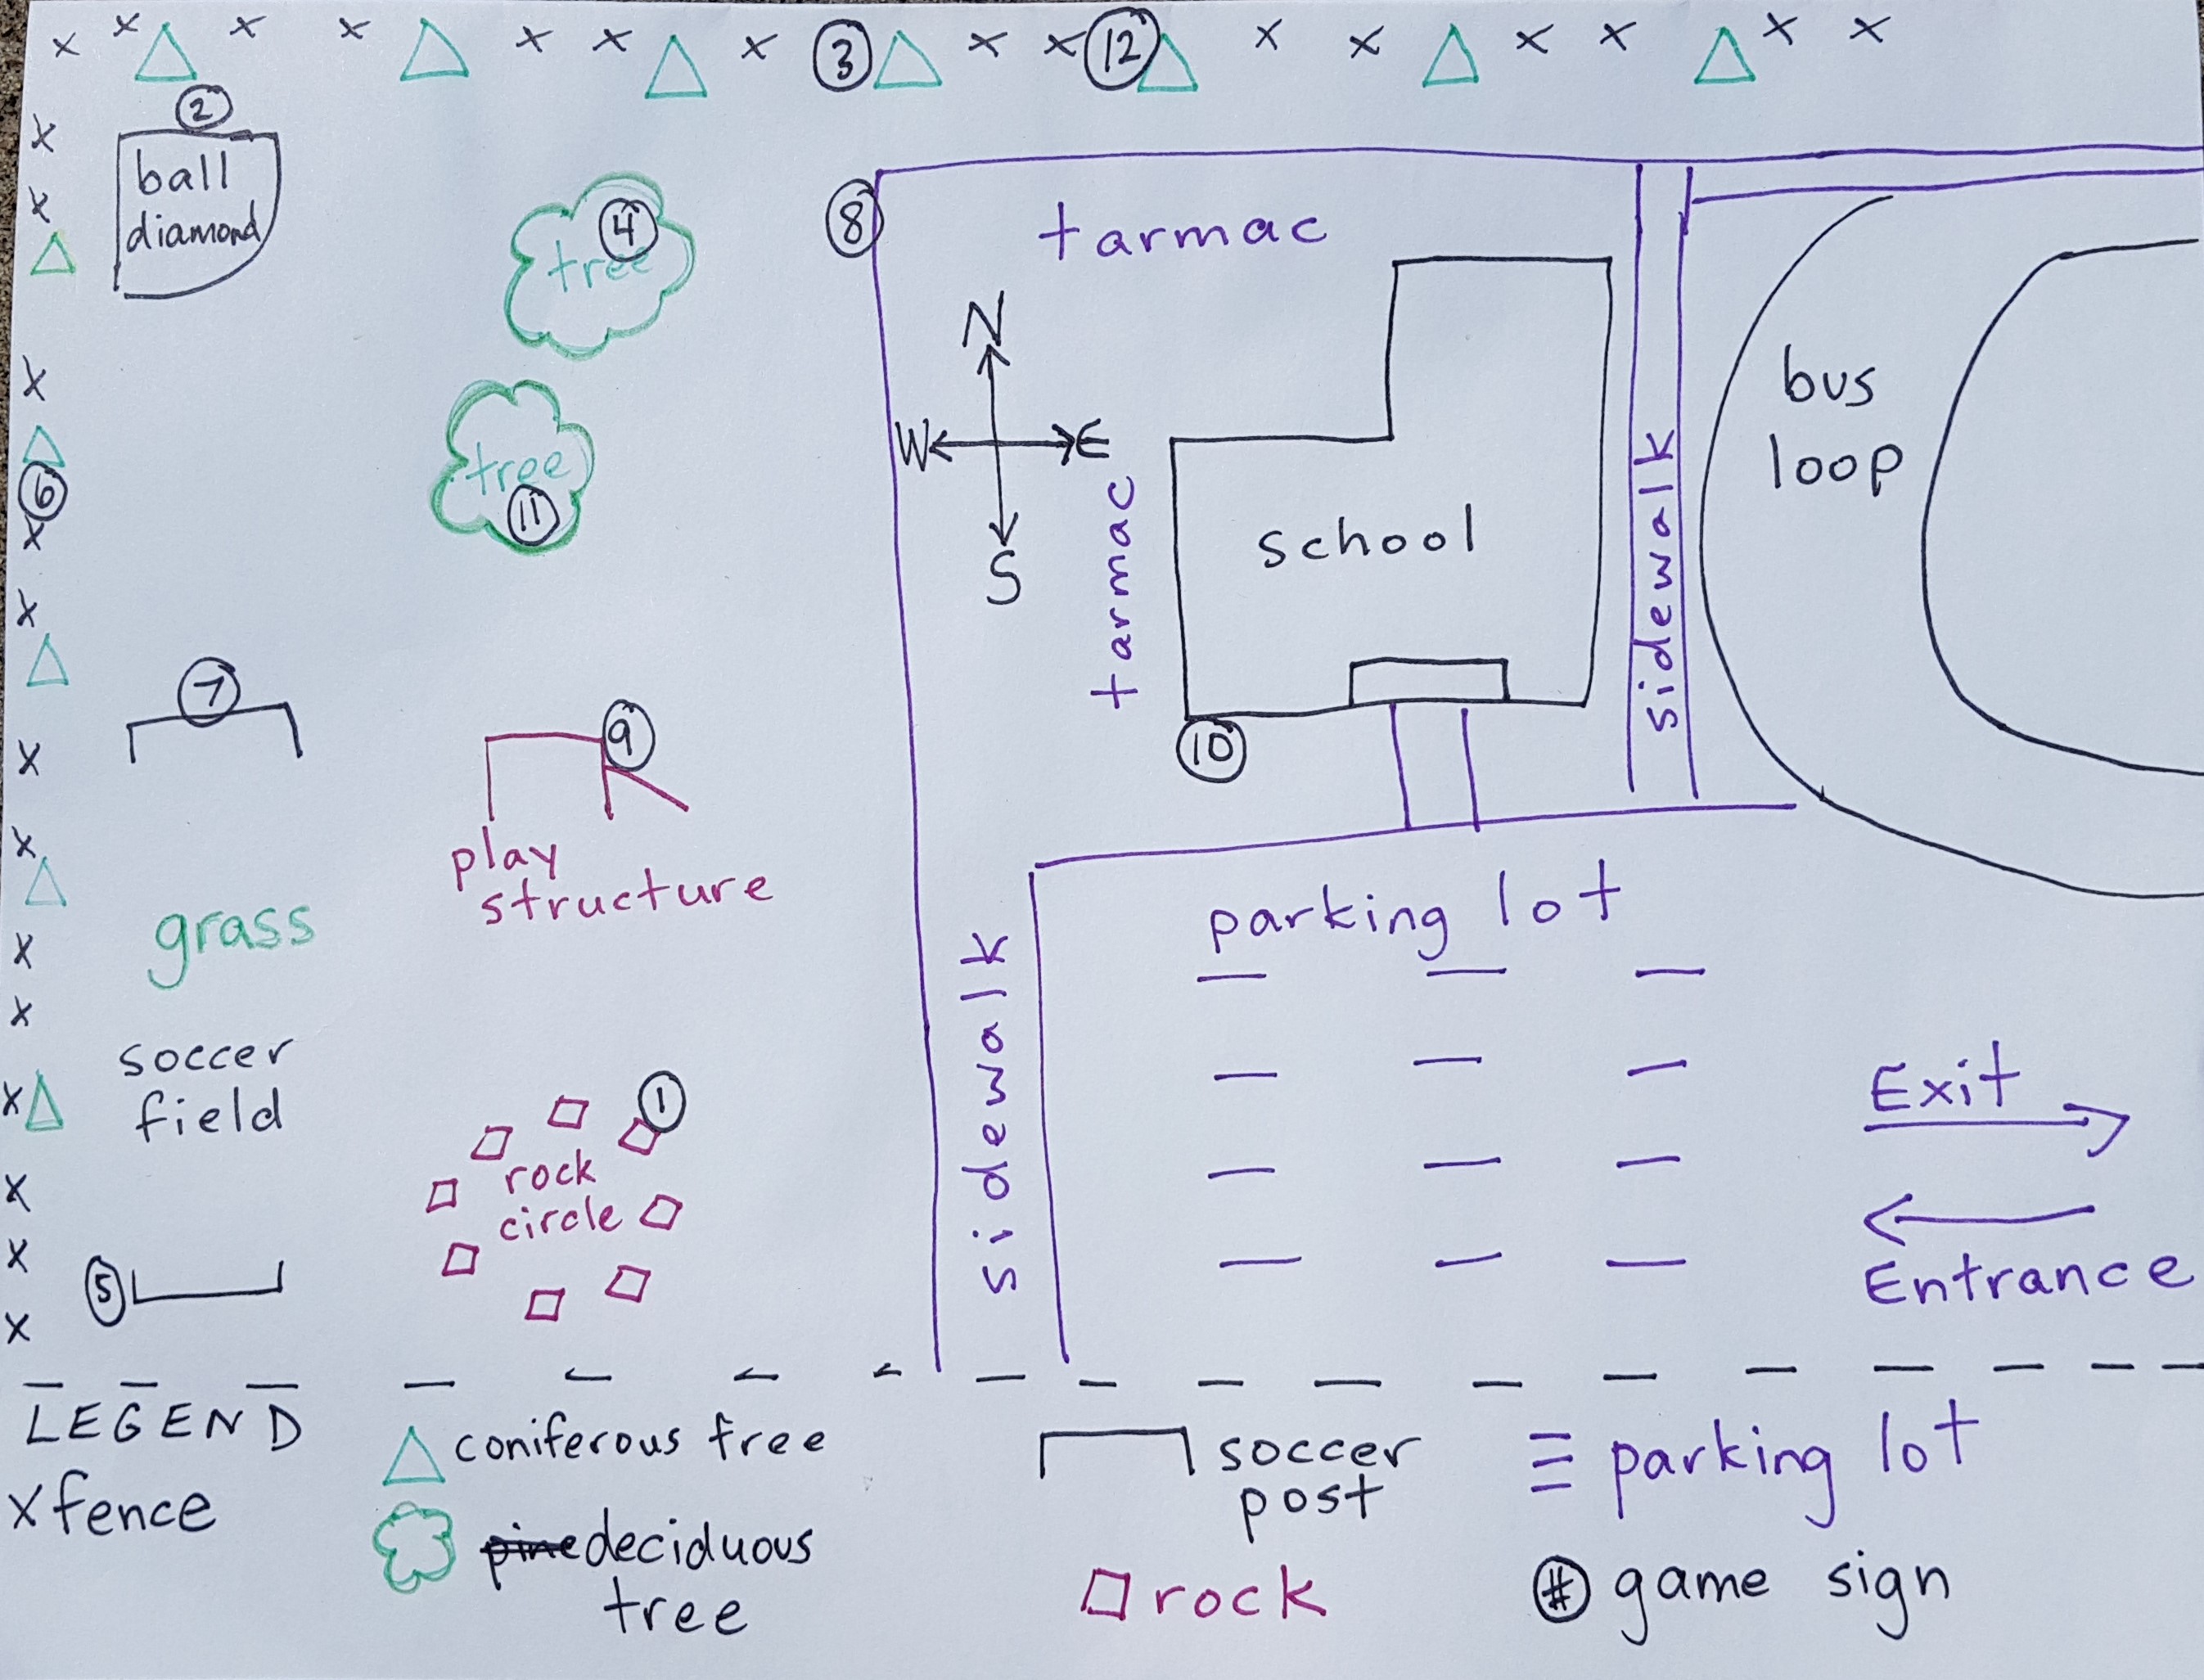 3
12
2
ball
diamond
4
tree
8
tarmac
N
W
E
S
bus
loop
tree
11
6
tarmac
school
sidewalk
7
9
10
play
structure
parking lot
grass
sidewalk
soccer
field
1
Exit
rock
circle
5
Entrance
LEGEND
x fence
coniferous tree
pine deciduous
tree
soccer
post
rock
parking lot
# game sign